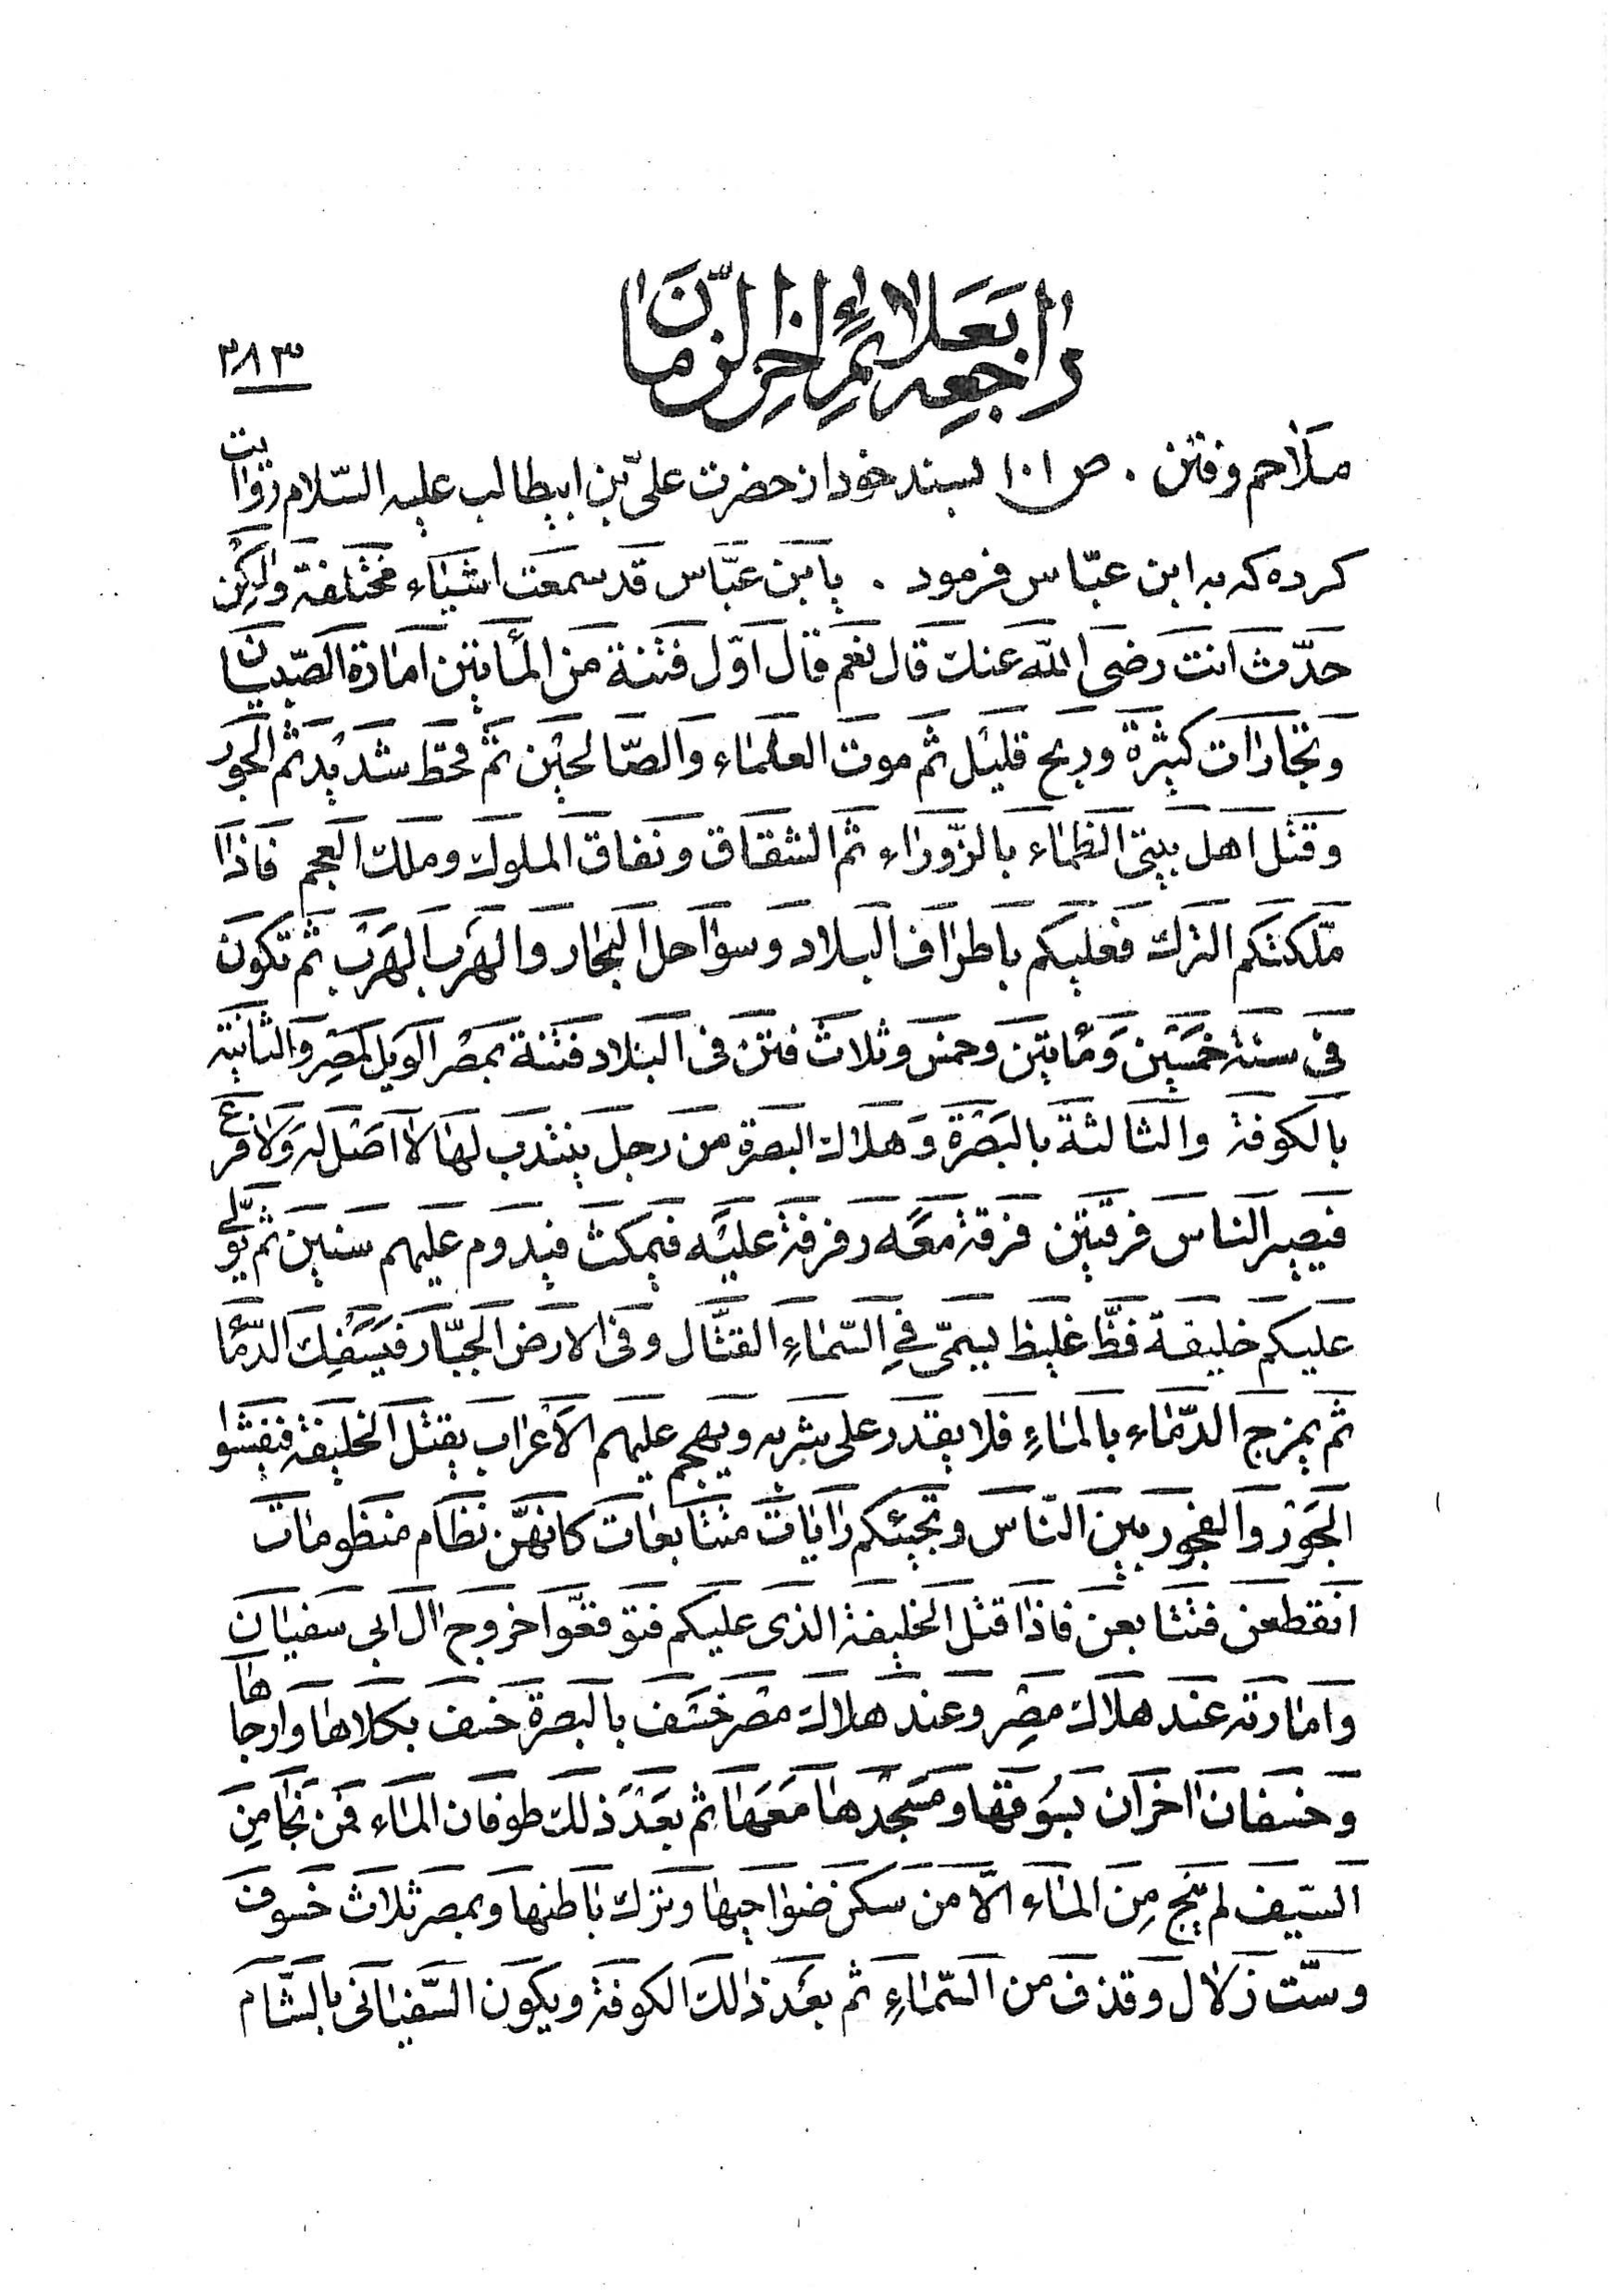 راجع بعلائم اخر الزمان
۳۸۳
ملاحم وفتن . ص ۱۰۱ بسند خود از حضرت علیّ بن ابیطالب علیه السّلام روایت
کرده که به ابن عبّاس فرمود . یابن عبّاس قد سمعت اشیاء مختلفة ولکن
حدّث انت رضی الله عنك قال نعم قال اوّل فتنة من المأتین امارة الصّبیان
وتجارات کثیرة وربح قلیل ثم موت العلماء والصّالحین ثم قحط شدید ثم الجور
وقتل اهل بیتی الظماء بالزّوراء ثم الشقاق ونفاق الملوك وملك العجم فاذا
ملّکتکم الترك فعلیکم باطراف البلاد وسواحل البحار والهرب الهرب ثم تکون
فی سنة خمسین ومأتین وخمس وثلاث فتن فی البلاد فتنة بمصر الویل لمصر والثانیة
بالکوفة والثالثة بالبصرة وهلاك البصرة من رجل ینتدب لها لا اصل له ولا فرع
فیصیر الناس فرقتین فرقة معه وفرقة علیه فیمکث فیدوم علیهم سنین ثم یولّی
علیکم خلیفة فظّ غلیظ یسمّی فِی السّماءِ القتّال وفی الارض الجبّار فیسفِك الدّماء
ثم یمزج الدّماء بالماءِ فلا یقدر علی شربه ویهجم علیهم الاعراب یقتل الخلیفة فیفشوا
الجَوْر والفجور بین النّاس وتجیئکم رایات متتابعات کانهنّ نظام منظومات
انقطعن فتتابعن فاذا قتل الخلیفة الذی علیکم فتوقعّوا خروج ال ابی سفیان
وامارته عند هلاك مصر وعند هلاك مصر خسف بالبصرة خسف بکلاها وارجاها
وخسفان اخران بسوقها ومسجدها معها ثم بعد ذلك طوفان الماء فمن نجا من
السّیف لم ینج من الماء الّا من سکن ضواحیها وترك باطنها وبمصر ثلاث خسوف
وستّ زلازل وقذف من السّماءِ ثم بعد ذلك الکوفة ویکون السّفیانی بالشّام